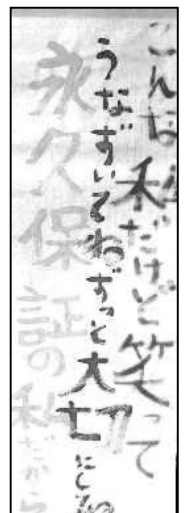 こんな私だけど笑って
うなずいてねずっと大切にしてね
永久保証の私だから